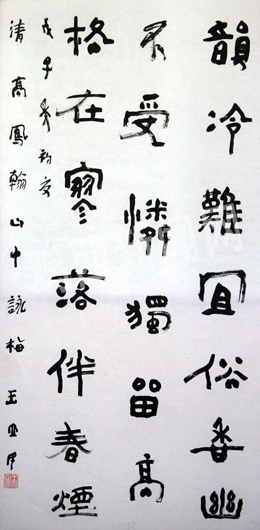 韻冷難宜俗香幽
不受憐獨留高
格在寥落伴春煙
戊子
清高鳳翰山中詠梅 王亞